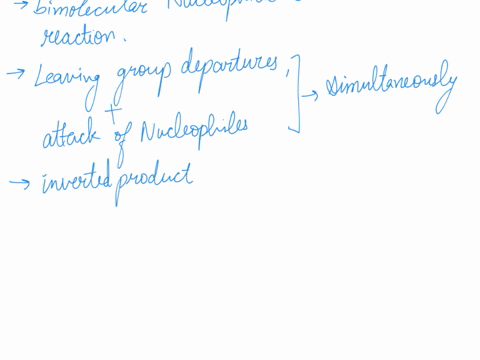 → bimolecular Nucleophilic
reaction.
→ Leaving group departures,
+
attack of Nucleophiles
→ Simultaneously
→ inverted product